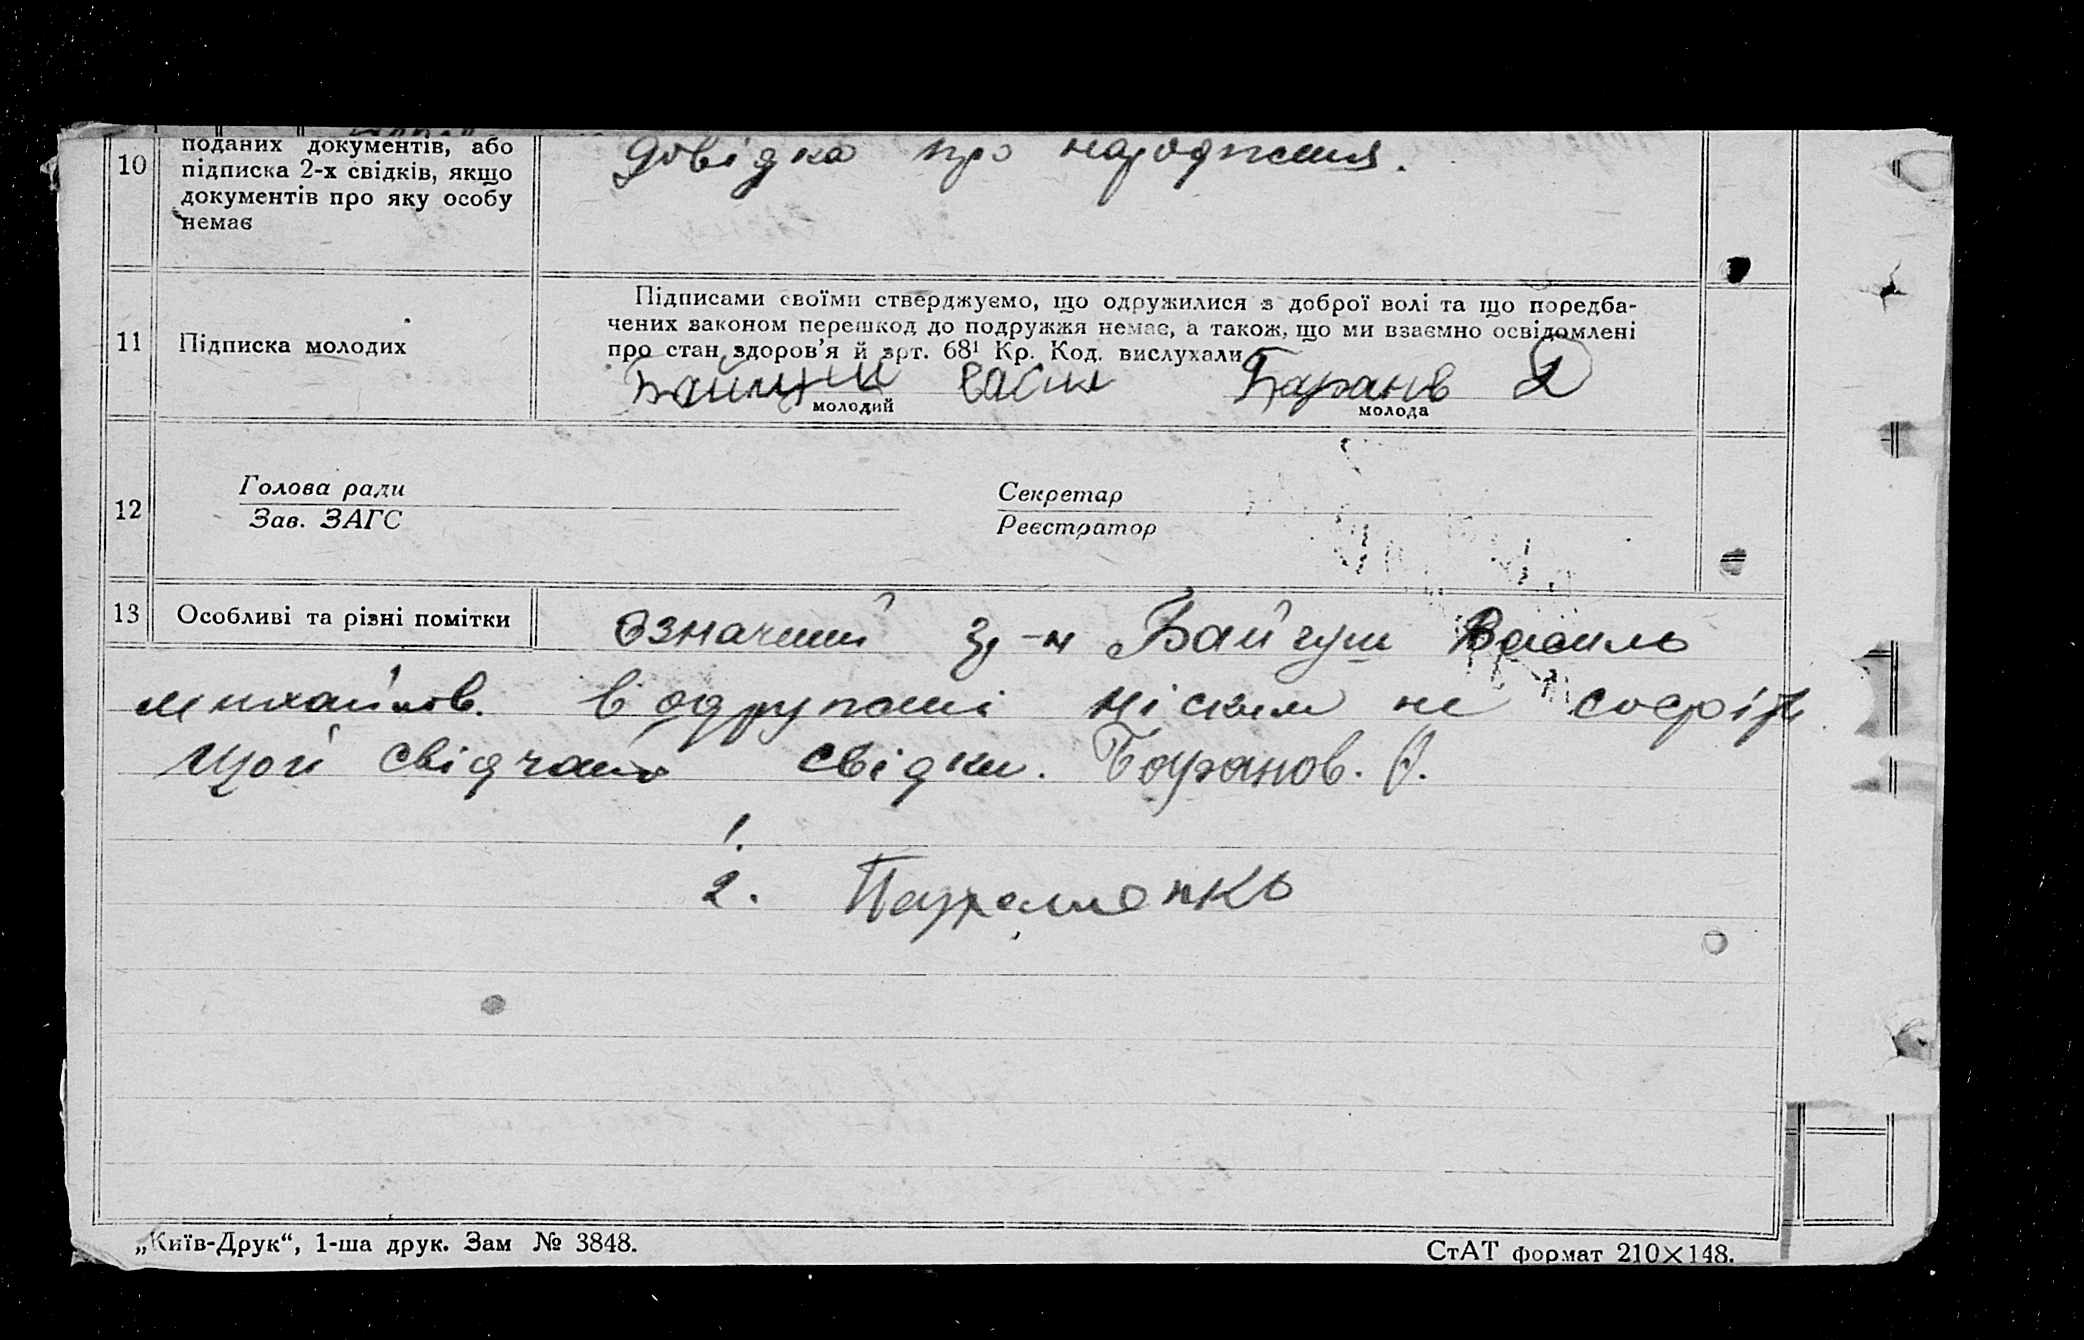 10
поданих документів, або
підписка 2-х свідків, якщо
документів про яку особу
немає
довідка про народження.
11
Підписка молодих
Підписами своїми стверджуємо, що одружилися з доброї волі та що поредба-
чених законом перешкод до подружжя немає, а також, що ми взаємно освідомлені
про стан здоров’я й арт. 68¹ Кр. Код. вислухали
Васил
молодий
молода
12
Голова ради
Зав. ЗАГС
Секретар
Реєстратор
13
Особливі та різні помітки
Означений гр-н Байгуш Василь
михайлов. в одружені ніским не
цой свідчать свідки. Баранов. А.
1.
2.
„Київ-Друк“, 1-ша друк. Зам № 3848.
СтАТ формат 210×148.